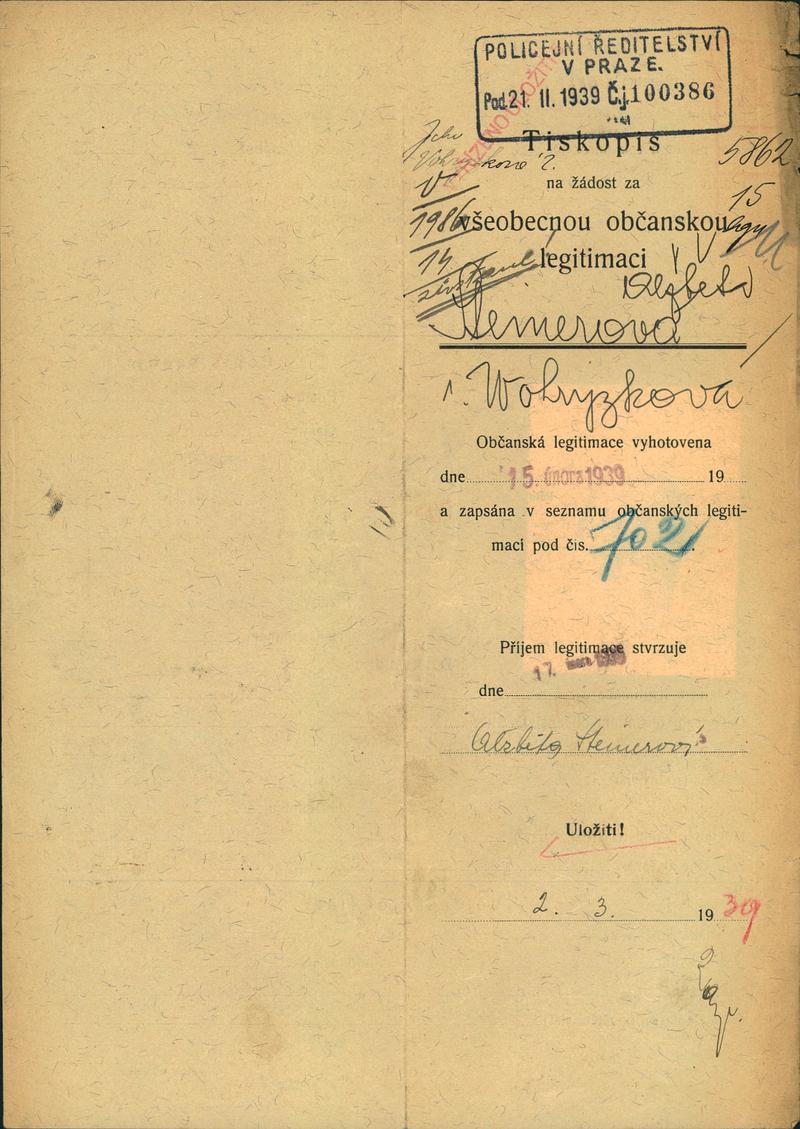 POLICEJNÍ ŘEDITELSTVÍ
V PRAZE.
Pod. 21. II. 1939 Č.j. 100386
Tiskopis
5862
na žádost za
15
V
všeobecnou občanskou
1986
legitimaci
14
Alzbeta
Steinerova
r. Wohryzkova
Občanská legitimace vyhotovena
dne 15. února 1939 19
a zapsána v seznamu občanských legiti-
mací pod čís. 702
Příjem legitimace stvrzuje
17. února 1939
dne
Alzbeta Steinerová
Uložiti!
2. 3. 1939